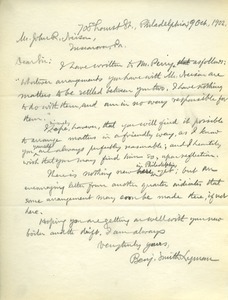 708 Locust St., Philadelphia, 9 Oct., 1902.
Mr. John R.
Dear Sir:
I have written to Mr. Perry as follows:
"Whatever arrangements you have with Mr.
matters to be settled between you two. I have nothing
to do with them, and am in no way responsible for
them."
I hope, however, that you will find it possible
to arrange matters in a friendly way, as I know
you are always perfectly reasonable; and I heartily
wish that you may find him so, upon reflection.
There is nothing new in Philadelphia yet; but an
encouraging letter from another quarter indicates that
some arrangement may soon be made there, if not
here.
Hoping you are getting on well with your new
boiler and the digs, I am always
Very truly yours,
Benj. Smith Lyman.